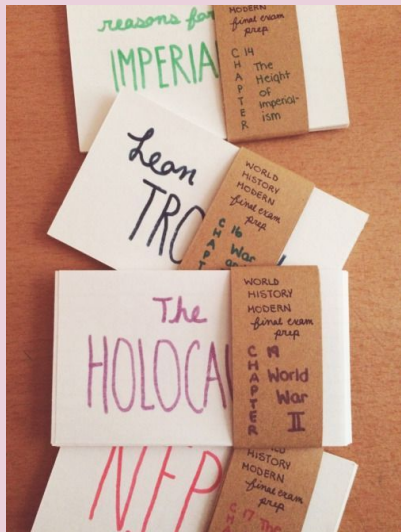 reasons for
IMPERIA
MODERN
final exam
prep
CHAPTER 14
The
Height
of
imperial-
ism
Leon
TRO
WORLD
HISTORY
MODERN
final exam
prep
CHA 16
War
The
HOLOCA
WORLD
HISTORY
MODERN
final exam
prep
CHAPTER 19
World
War
II
NEP
WORLD
HISTORY
MODERN
final exam
prep
C 17 The